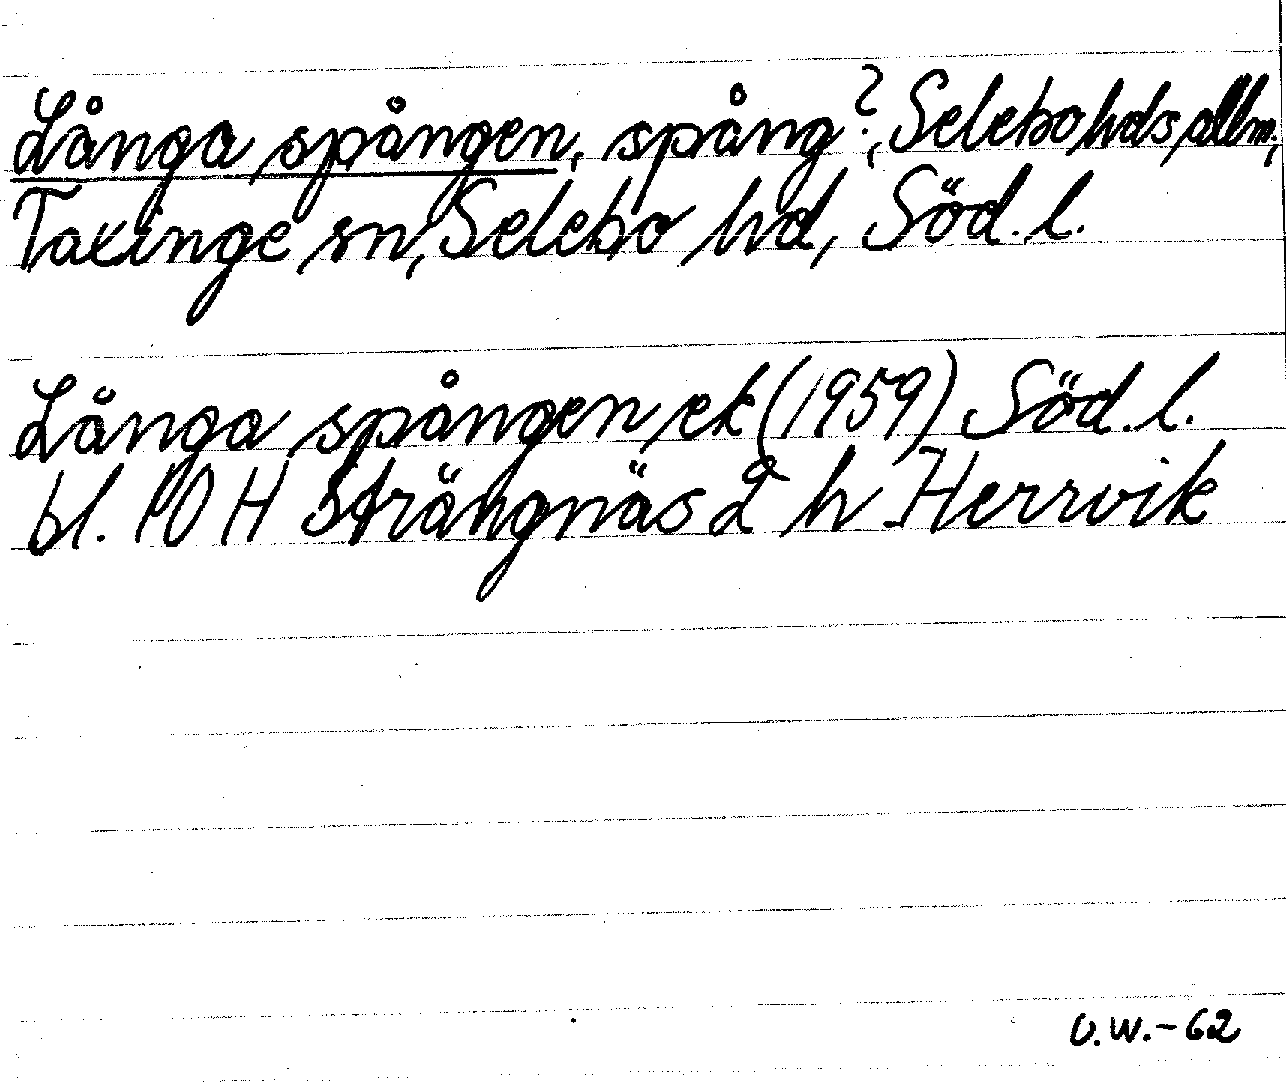 Långa spången, spång?, Selebo hds allm.,
Taxinge sn, Selebo hd, Söd. l.
Långa spången ek (1959) Söd. l.
bl. 10 H Strängnäs 2 h Herrvik
O.W.-62